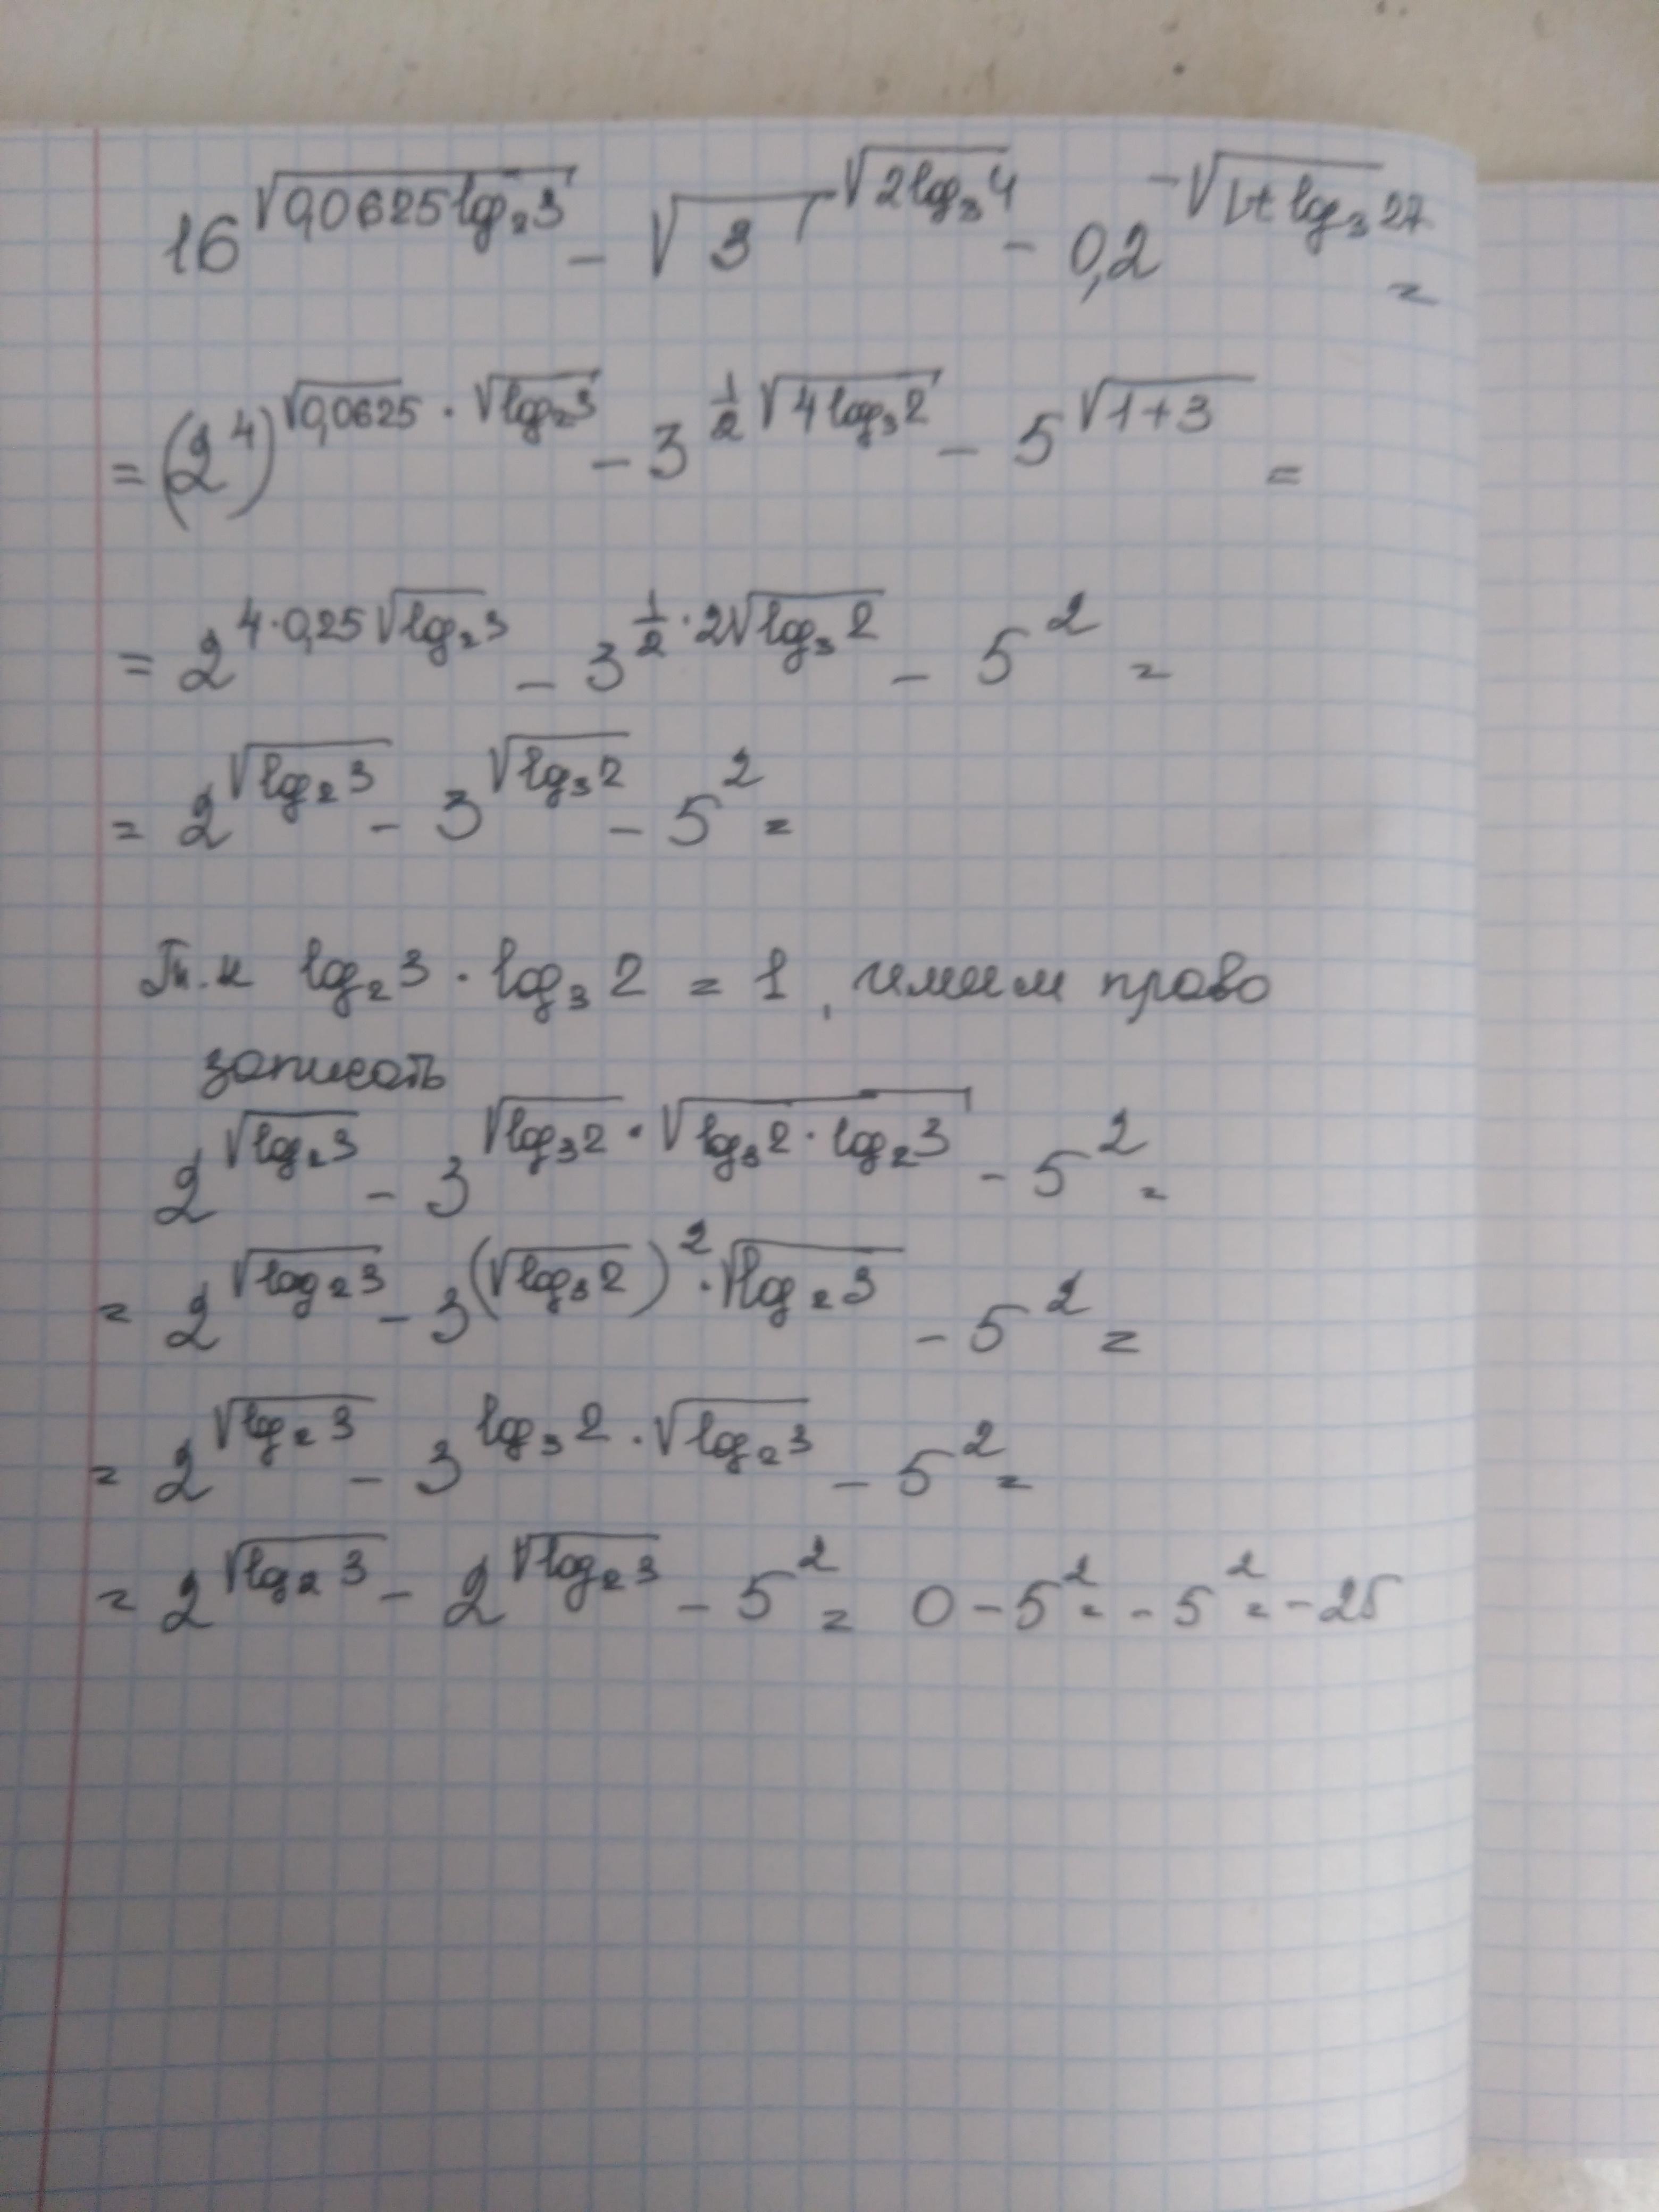 16^{\sqrt{0,0625 log_2 3}} - \sqrt{3}^{\sqrt{2 log_3 4}} - 0,2^{-\sqrt{1+log_3 27}} =
= (2^4)^{\sqrt{0,0625} · \sqrt{log_2 3}} - 3^{\frac{1}{2}\sqrt{4 log_3 2}} - 5^{\sqrt{1+3}} =
= 2^{4·0,25\sqrt{log_2 3}} - 3^{\frac{1}{2}·2\sqrt{log_3 2}} - 5^2 =
= 2^{\sqrt{log_2 3}} - 3^{\sqrt{log_3 2}} - 5^2 =
Т.к log_2 3 · log_3 2 = 1, имеем право
записать
2^{\sqrt{log_2 3}} - 3^{\sqrt{log_3 2} · \sqrt{log_3 2 · log_2 3}} - 5^2 =
= 2^{\sqrt{log_2 3}} - 3^{(\sqrt{log_3 2})^2 · \sqrt{log_2 3}} - 5^2 =
= 2^{\sqrt{log_2 3}} - 3^{log_3 2 · \sqrt{log_2 3}} - 5^2 =
= 2^{\sqrt{log_2 3}} - 2^{\sqrt{log_2 3}} - 5^2 = 0 - 5^2 = -5^2 = -25